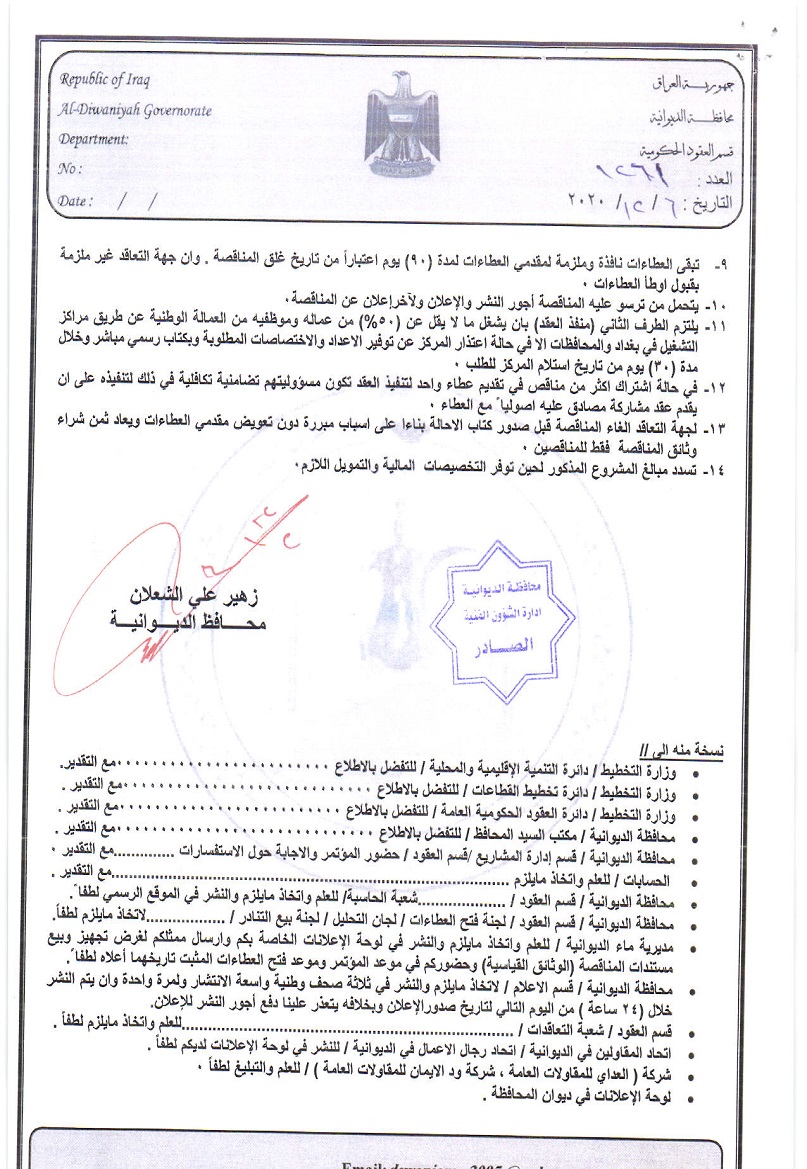 Republic of Iraq
Al-Diwaniyah Governorate
Department:
No :
Date : / /
جمهورية العراق
محافظة الديوانية
قسم العقود الحكومية
العدد :
التاريخ : ٦ / ١٢ / ٢٠٢٠
٩- تبقى العطاءات نافذة وملزمة لمقدمي العطاءات لمدة (٩٠) يوم اعتباراً من تاريخ غلق المناقصة . وان جهة التعاقد غير ملزمة
بقبول اوطأ العطاءات ٠
١٠- يتحمل من ترسو عليه المناقصة أجور النشر والإعلان ولآخرإعلان عن المناقصة٠
١١- يلتزم الطرف الثاني (منفذ العقد) بان يشغل ما لا يقل عن (٥٠%) من عماله وموظفيه من العمالة الوطنية عن طريق مراكز
التشغيل في بغداد والمحافظات الا في حالة اعتذار المركز عن توفير الاعداد والاختصاصات المطلوبة وبكتاب رسمي مباشر وخلال
مدة (٣٠) يوم من تاريخ استلام المركز للطلب ٠
١٢- في حالة اشتراك اكثر من مناقص في تقديم عطاء واحد لتنفيذ العقد تكون مسؤوليتهم تضامنية تكافلية في ذلك لتنفيذه على ان
يقدم عقد مشاركة مصادق عليه اصولياً مع العطاء ٠
١٣- لجهة التعاقد الغاء المناقصة قبل صدور كتاب الاحالة بناءا على اسباب مبررة دون تعويض مقدمي العطاءات ويعاد ثمن شراء
وثائق المناقصة فقط للمناقصين ٠
١٤- تسدد مبالغ المشروع المذكور لحين توفر التخصيصات المالية والتمويل اللازم٠
زهير علي الشعلان
محـــافظ الديـــوانيـــة
محافظة الديوانية
ادارة الشؤون الفنية
الصـادر
نسخة منه الى //
• وزارة التخطيط / دائرة التنمية الإقليمية والمحلية / للتفضل بالاطلاع ٠٠٠٠٠٠٠٠٠٠٠٠٠٠٠٠٠٠٠٠٠٠مع التقدير.
• وزارة التخطيط / دائرة تخطيط القطاعات / للتفضل بالاطلاع ٠٠٠٠٠٠٠٠٠٠٠٠٠٠٠٠٠٠٠٠٠٠٠٠٠٠مع التقدير .
• وزارة التخطيط / دائرة العقود الحكومية العامة / للتفضل بالاطلاع ٠٠٠٠٠٠٠٠٠٠٠٠٠٠٠٠٠٠٠٠٠٠مع التقدير .
• محافظة الديوانية / مكتب السيد المحافظ / للتفضل بالاطلاع ٠٠٠٠٠٠٠٠٠٠٠٠٠٠٠٠٠٠٠٠٠٠٠٠٠٠مع التقدير .
• محافظة الديوانية / قسم إدارة المشاريع /قسم العقود / حضور المؤتمر والاجابة حول الاستفسارات ..............مع التقدير ٠
• الحسابات / للعلم واتخاذ مايلزم ......................................................................مع التقدير .
• محافظة الديوانية / قسم العقود / ....................شعبة الحاسبة/ للعلم واتخاذ مايلزم والنشر في الموقع الرسمي لطفاً .
• محافظة الديوانية / قسم العقود / لجنة فتح العطاءات / لجان التحليل / لجنة بيع التنادر / .................لاتخاذ مايلزم لطفاً.
• مديرية ماء الديوانية / للعلم واتخاذ مايلزم والنشر في لوحة الإعلانات الخاصة بكم وارسال ممثلكم لغرض تجهيز وبيع
مستندات المناقصة (الوثائق القياسية) وحضوركم في موعد المؤتمر وموعد فتح العطاءات المثبت تاريخهما أعلاه لطفاً .
• محافظة الديوانية / قسم الاعلام / لاتخاذ مايلزم والنشر في ثلاثة صحف وطنية واسعة الانتشار ولمرة واحدة وان يتم النشر
خلال (٢٤ ساعة ) من اليوم التالي لتاريخ صدورالإعلان وبخلافه يتعذر علينا دفع أجور النشر للإعلان.
• قسم العقود / شعبة التعاقدات / ..............................................................للعلم واتخاذ مايلزم لطفاً .
• اتحاد المقاولين في الديوانية / اتحاد رجال الاعمال في الديوانية / للنشر في لوحة الإعلانات لديكم لطفاً .
• شركة ( العداي للمقاولات العامة ، شركة ود الايمان للمقاولات العامة ) / للعلم والتبليغ لطفاً ٠
• لوحة الإعلانات في ديوان المحافظة .